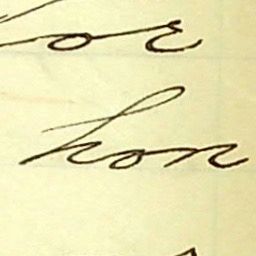 for
hon